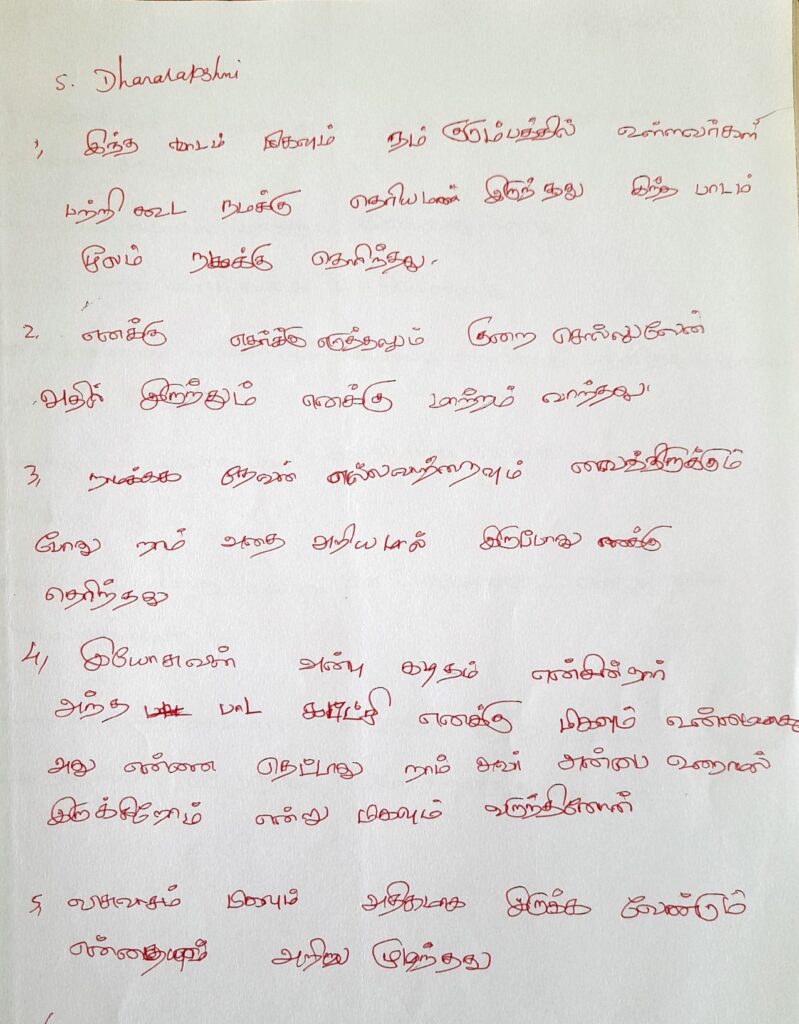 S. Dhanalakshmi
1, இந்த பாடம் மிகவும் நம் குடும்பத்தில் உள்ளவர்கள்
பற்றி கூட நமக்கு தெரியாமல் இருந்தது இந்த பாடம்
மூலம் நமக்கு தெரிந்தது.
2. எனக்கு எதற்க்கு எடுத்தலும் குறை சொல்லுவேன்
அதில் இருந்தும் எனக்கு மாற்றம் வாந்தது.
3, நமக்காக தேவன் எல்லவாற்றைவும் வைத்திருக்கும்
போது நாம் அதை அறியமால் இருபோது எனக்கு
தெரிந்தது
4, இயோசுவின் அன்பு கடிதம் என்கின்றார்
அந்த பாட காட்சி எனக்கு மிகவும் உண்மையாக
அது என்ன தெப்பாது நாம் அவர் அன்பை உணராமல்
இருக்கிறோம் என்று மிகவும் வருந்தினேன்
5, விசுவாசம் மிகவும் அதிகமாக இருக்க வேண்டும்
என்பதையும் அறிய முடிந்தது